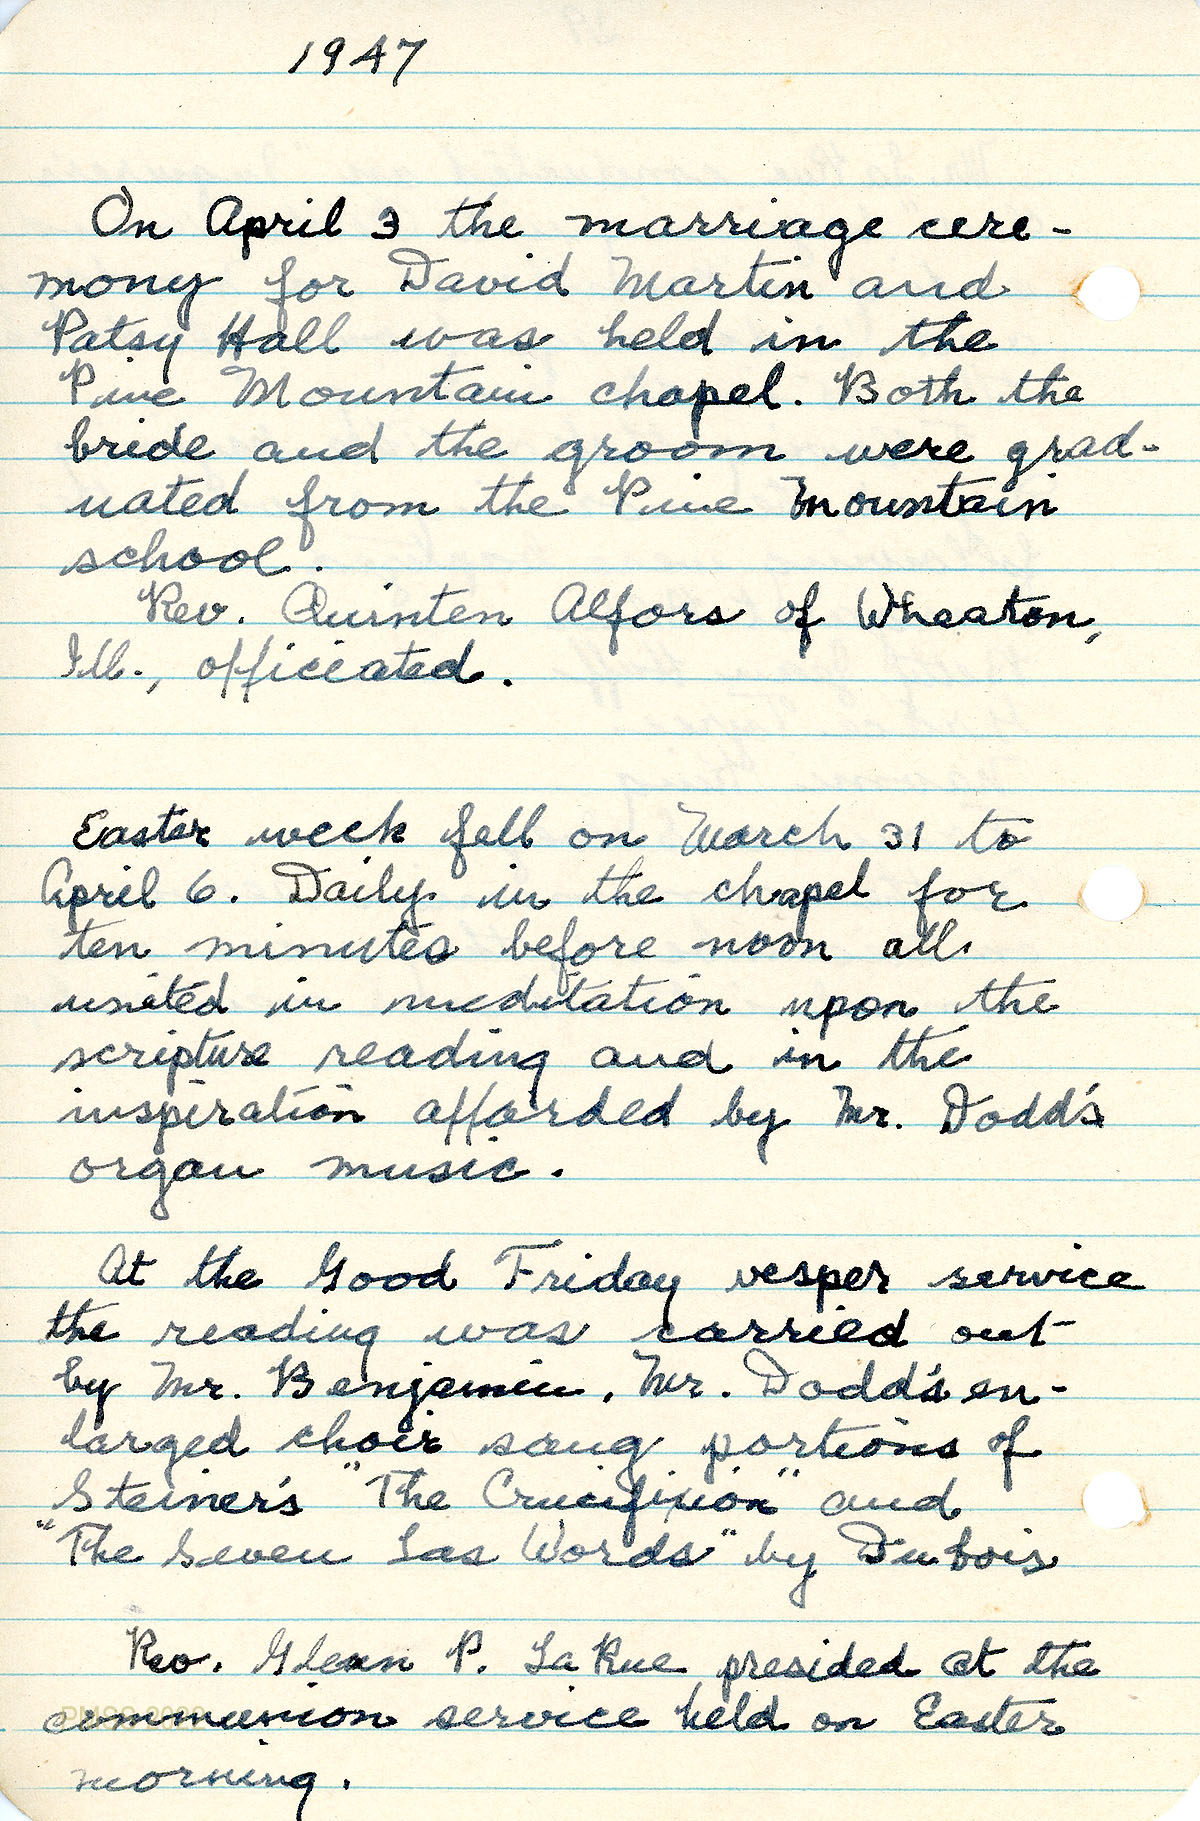 1947
On April 3 the marriage cere-
mony for David Martin and
Patsy Hall was held in the
Pine Mountain chapel. Both the
bride and the groom were grad-
uated from the Pine Mountain
school.
Rev. Quinten Alfors of Wheaton,
Ill., officiated.
Easter week fell on March 31 to
April 6. Daily in the chapel for
ten minutes before noon all
united in meditation upon the
scripture reading and in the
inspiration afforded by Mr. Dodd's
organ music.
At the Good Friday vesper service
the reading was carried out
by Mr. Benjamin. Mr. Dodd's en-
larged choir sang portions of
Steiner's "The Crucifixion" and
"The Seven Las Words" by Dubois
Rev. Glenn P. La Rue presided at the
communion service held on Easter
morning.